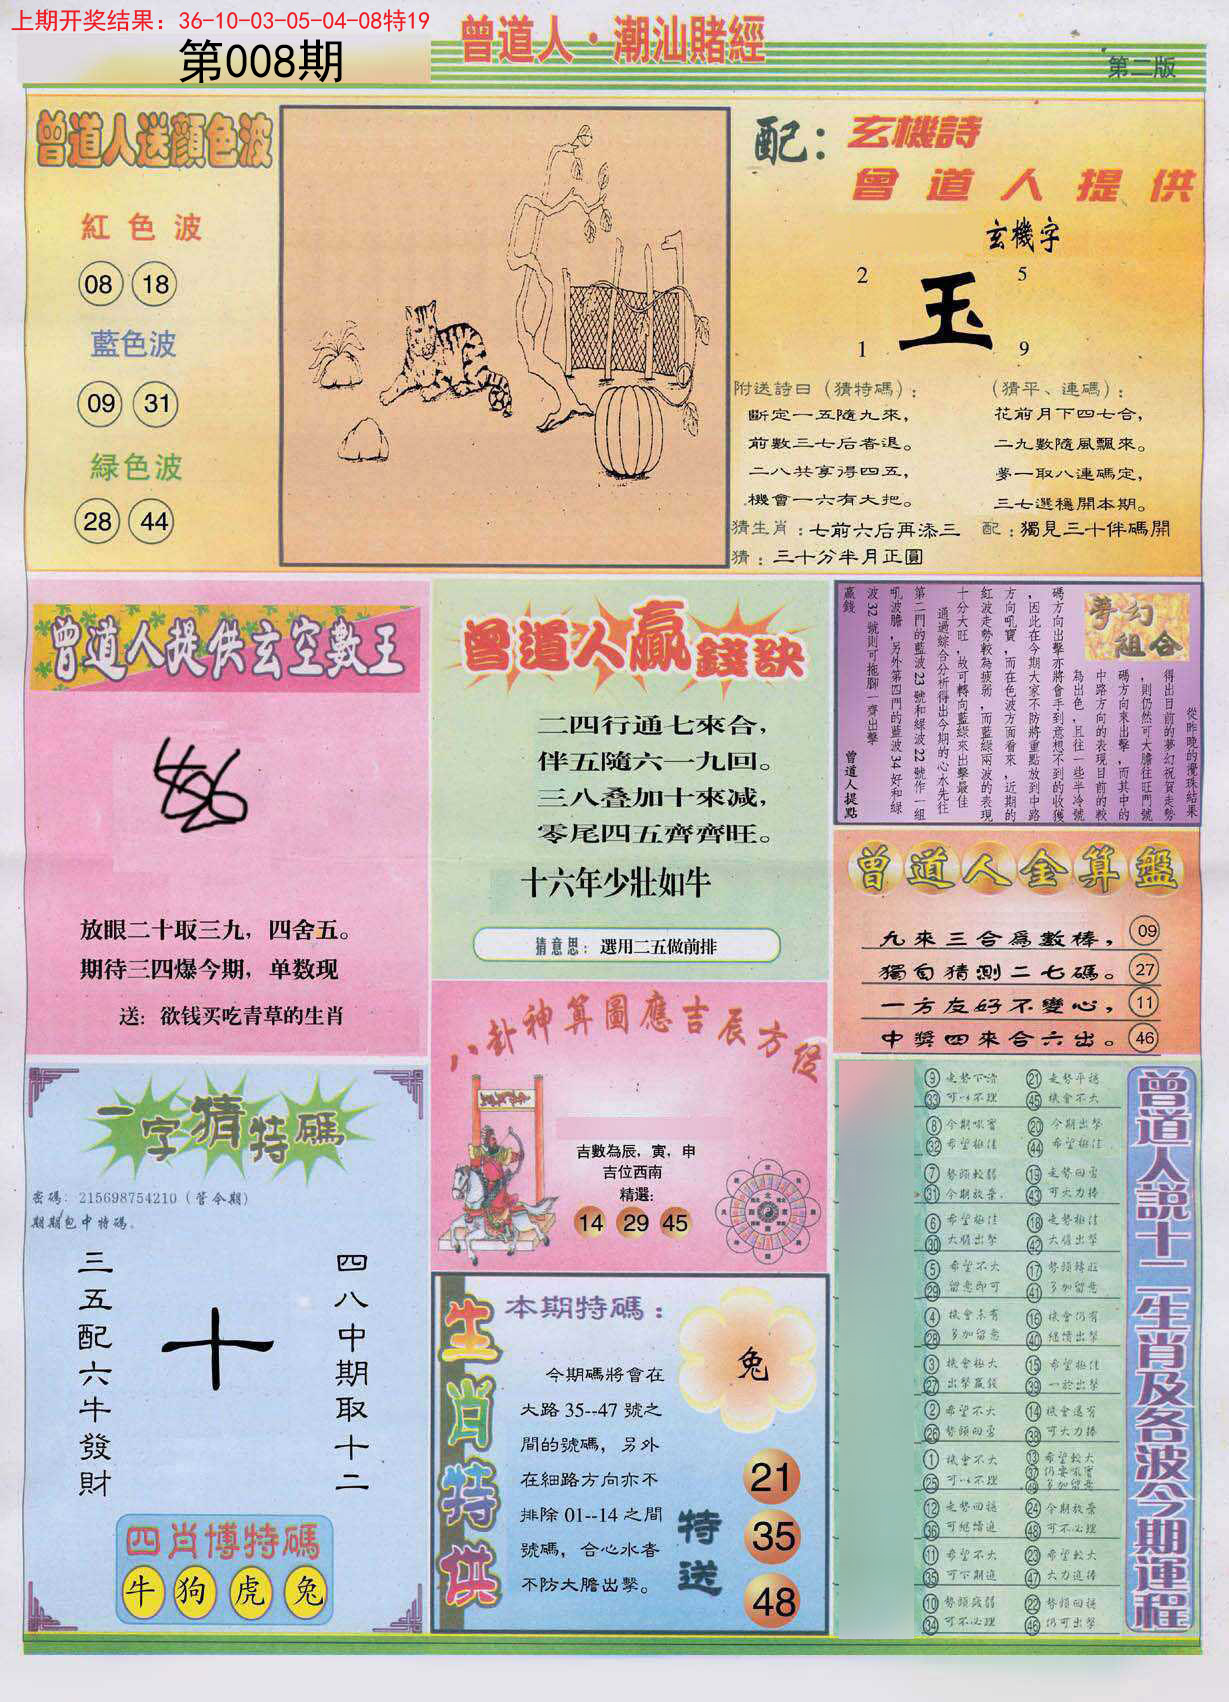 上期开奖结果：36-10-03-05-04-08特19
第008期
曾道人·潮汕賭經
第二版
曾道人送顔色波
紅色波
08 18
藍色波
09 31
緑色波
28 44
配：玄機詩
曾道人提供
玄機字
2 5
玉
1 9
附送詩曰（猜特碼）：
斷定一五隨九來，
前數三七后者退。
二八共享得四五，
機會一六有大把。
（猜平、連碼）：
花前月下四七合，
二九數隨風飄來。
夢一取八連碼定，
三七選穩開本期。
猜生肖：七前六后再添三
配：獨見三十伴碼開
猜：三十分半月正圓
曾道人提供玄空數王
放眼二十取三九，四舍五。
期待三四爆今期，单数现
送：欲钱买吃青草的生肖
曾道人贏錢訣
二四行通七來合，
伴五隨六一九回。
三八叠加十來减，
零尾四五齊齊旺。
十六年少壯如牛
猜意思：選用二五做前排
夢幻組合
從昨晚的攪珠結果
得出目前的夢幻祝賀走勢
，則仍然可大膽往旺門號
碼方向來出擊，而其中的
中路方向的表現目前的較
為出色，且往一些半冷號
碼方向出擊亦將會手到意想不到的收獲
，因此在今期大家不防將重點放到中路
方向吼寶，而在色波方面看來，近期的
紅波走勢較為疲弱，而藍綠兩波的表現
十分大旺，故可轉向藍綠來出擊最佳
通過綜合分析得出今期的心水先往
第二門的藍波23號和綠波22號作一組
吼波膽，另外第四門的藍波34好和綠
波32號則可拖腳一齊出擊
贏錢
曾道人提點
曾道人金算盤
九來三合爲數棒，09
獨自猜測二七碼。27
一方友好不變心，11
中獎四來合六出。46
八卦神算圖應吉辰方位
吉數為辰，寅，申
吉位西南
精選：
14 29 45
一字猜特碼
密碼：215698754210（管今期）
期期包中特碼。
三五配六牛發財
十
四八中期取十二
四肖博特碼
牛 狗 虎 兔
生肖特供
本期特碼：
今期碼將會在
大路35--47號之
間的號碼，另外
在細路方向亦不
排除01--14之間
號碼，合心水者
不防大膽出擊。
兔
特送
21
35
48
曾道人説十二生肖及各波今期運程
⑨ 走勢下滑 ㉑ 走勢平穩
㉝ 可以不理 ㊺ 機會不大
⑧ 今期吼實 ⑳ 今期出擊
㉜ 希望極佳 ㊹ 希望極佳
⑦ 勢頭較弱 ⑲ 走勢回勇
㉛ 今期放棄. ㊸ 可大力捧
⑥ 希望極佳 ⑱ 走勢極佳
㉚ 大膽出擊 ㊷ 大膽出擊
⑤ 希望不大 ⑰ 勢頭轉旺
㉙ 留意即可 ㊶ 多加留意
④ 機會未有 ⑯ 機會仍有
㉘ 多加留意 ㊵ 繼續出擊
③ 機會極大 ⑮ 希望極佳
㉗ 出擊贏錢 ㊴ 一於出擊
② 希望不大 ⑭ 機會還有
㉖ 勢頭回勇 ㊳ 可大力捧
① 機會不大 ⑬ 希望較大
㉕ 可以不理 ㊲ 仍要吼實
㊾ 多加留意
⑫ 走勢回穩 ㉔ 今期放棄
㊱ 可繼續追 ㊽ 可不必理
⑪ 希望不大 ㉓ 希望較大
㉟ 可下期追 ㊼ 大力追捧
⑩ 勢頭疲弱 ㉒ 勢頭回穩
㉞ 可不必理 ㊻ 仍可出擊